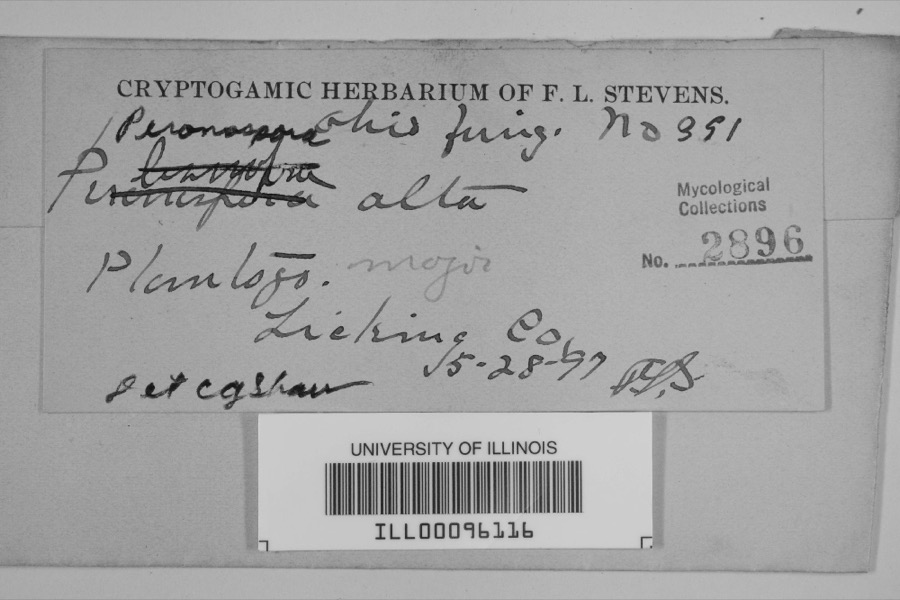 CRYPTOGAMIC HERBARIUM OF F. L. STEVENS.
Peronospora Ohio fungi. No 391
Peronospora alta
Mycological
Collections
No. 2896
Plantago. major
Licking Co.
5-28-97 FLS
det CG Shaw
UNIVERSITY OF ILLINOIS
ILL00096116